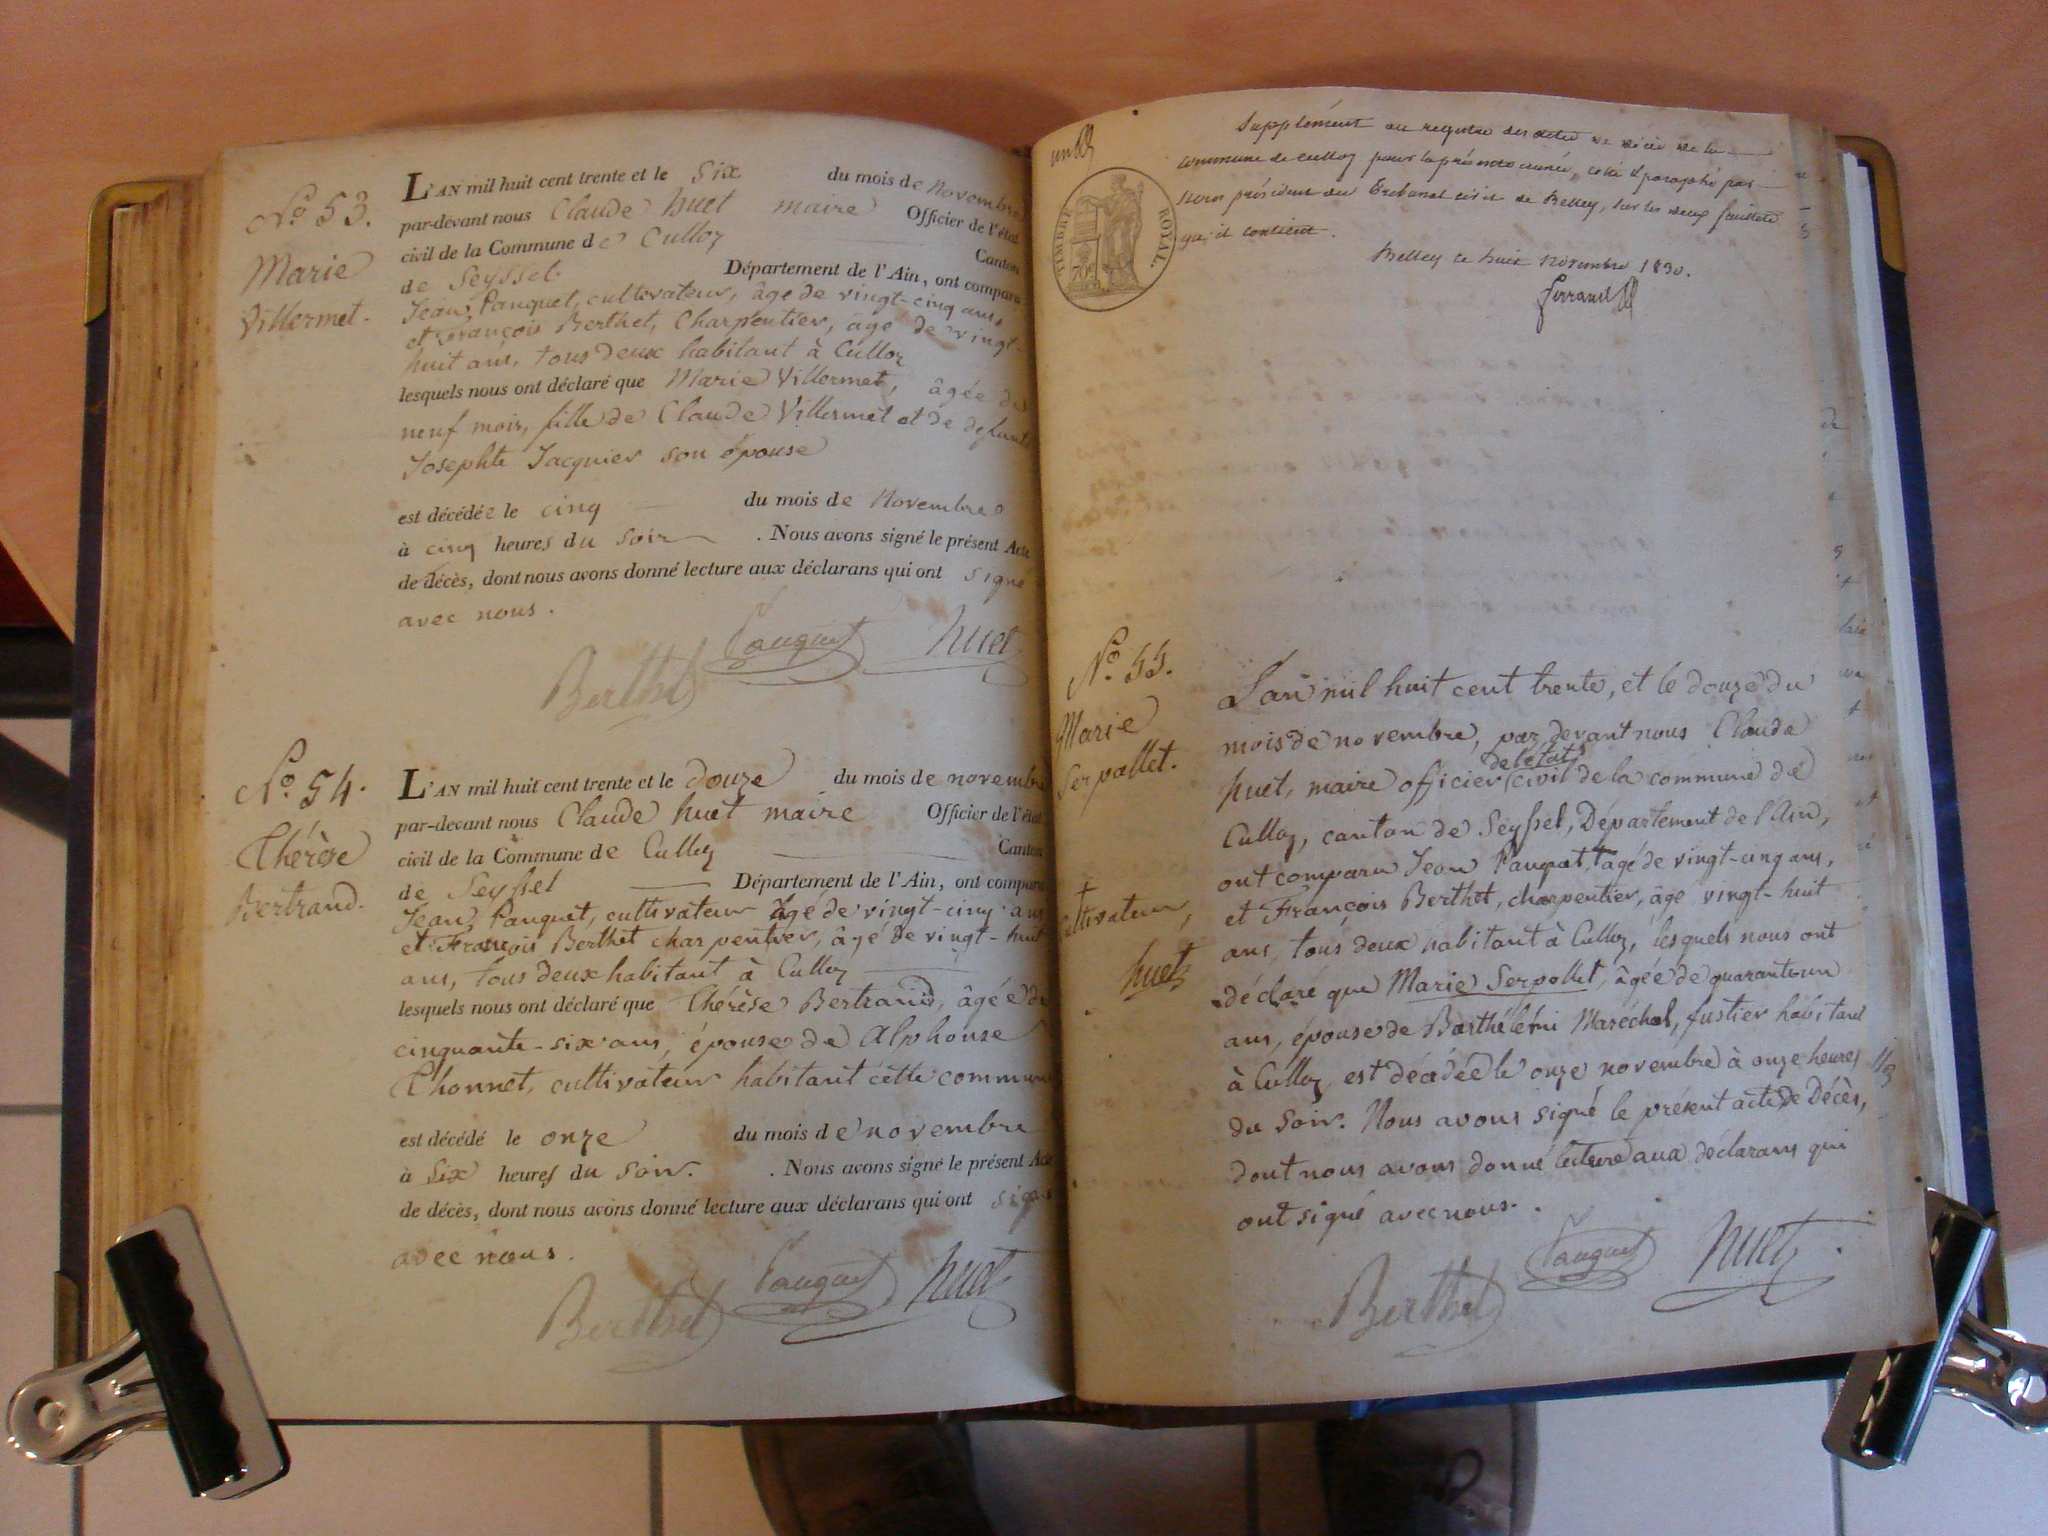 N.º 53.
Marie
Villermet.
L'AN mil huit cent trente et le six du mois de novembre
par-devant nous Claude huet maire Officier de l'état
civil de la Commune de Culloz Canton
de Seyssel. Département de l'Ain, ont comparu
Jean Pauquet, cultivateur, âgé de vingt-cinq ans,
et François Berthet, Charpentier, âgé de vingt-
huit ans, tous deux habitant à Culloz
lesquels nous ont déclaré que Marie Villermet, âgée de
neuf mois, fille de Claude Villermet et de defunte
Josephte Jacquier son épouse
est décédée le cinq du mois de Novembre
à cinq heures du soir . Nous avons signé le présent Acte
de décès, dont nous avons donné lecture aux déclarans qui ont signé
avec nous.
Berthet Pauquet huet
N.º 54.
Thérèse
Bertrand.
L'AN mil huit cent trente et le douze du mois de novembre
par-devant nous Claude huet maire Officier de l'état
civil de la Commune de Culloz Canton
de Seyssel Département de l'Ain, ont comparu
Jean Pauquet, cultivateur âgé de vingt-cinq ans
et François Berthet charpentier, âgé de vingt-huit
ans, tous deux habitant à Culloz
lesquels nous ont déclaré que Thérèse Bertrand, âgée de
cinquante-six ans, épouse de Alphonse
Thonnet, cultivateur habitant cette commune
est décédé le onze du mois de novembre
à six heures du soir. . Nous avons signé le présent Acte
de décès, dont nous avons donné lecture aux déclarans qui ont signé
avec nous.
Berthet Pauquet huet
Supplément au registre des actes de décès de la
commune de culloz pour la présente année, coté et paraphé par
nous président du Tribunal civil de Belley, sur les deux feuillets
qu'il contient.
Belley le huit novembre 1830.
TIMBRE ROYAL.
N.º 55.
Marie
Serpollet.
L'an mil huit cent trente, et le douze du
mois de novembre, par devant nous Claude
de l'état
huet, maire officier civil de la commune de
Culloz, canton de Seyssel, Département de l'Ain,
ont comparu Jean Pauquet, + âgé de vingt-cinq ans,
et François Berthet, charpentier, âgé vingt-huit
ans, tous deux habitant à Culloz, lesquels nous ont
déclaré que Marie Serpollet, âgée de quarante un
ans, épouse de Barthélémi Maréchal, fustier habitant
à Culloz, est décédée le onze novembre à onze heures
du soir. Nous avons signé le présent acte de Décès,
dont nous avons donné lecture aux déclarans qui
ont signé avec nous.
+
cultivateur,
huet
Berthet Pauquet huet